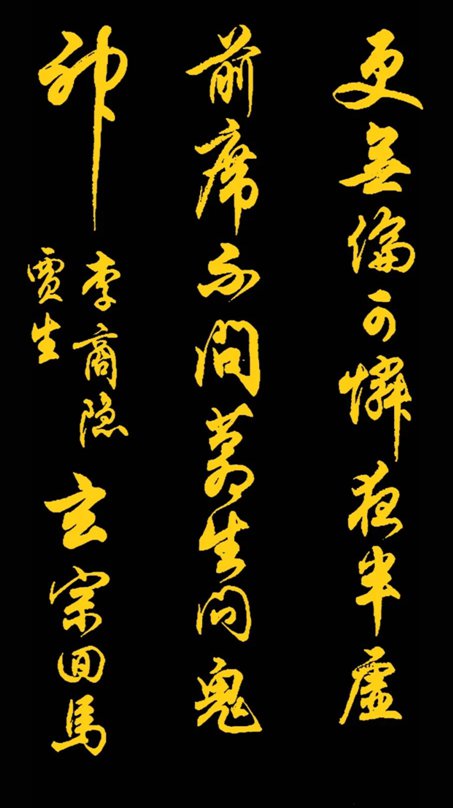 更無倫可憐夜半虛
前席不問蒼生問鬼
神
李商隐
贾生
玄宗回馬